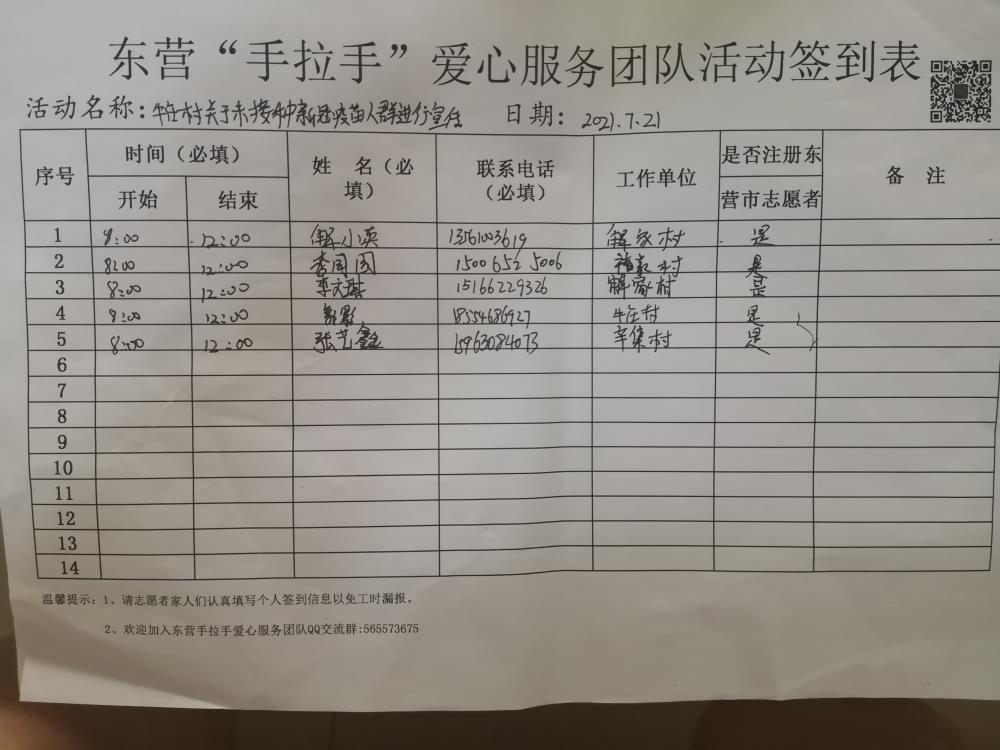 东营“手拉手”爱心服务团队活动签到表
活动名称：牛庄村关于未接种新冠疫苗人群进行宣传 日期：2021.7.21
序号 时间（必填） 姓 名（必填） 联系电话（必填） 工作单位 是否注册东营市志愿者 备 注
开始 结束
1 8:00 12:00 解小英 13561003619 解家村 是
2 8:00 12:00 李同同 15006525006 村 是
3 8:00 12:00 李文 15166229326 解家村 是
4 8:00 12:00 18554686927 牛庄村 是
5 8:00 12:00 张艺鑫 15963084073 辛集村 是
6
7
8
9
10
11
12
13
14
温馨提示：1、请志愿者家人们认真填写个人签到信息以免工时漏报。
2、欢迎加入东营手拉手爱心服务团队QQ交流群:565573675